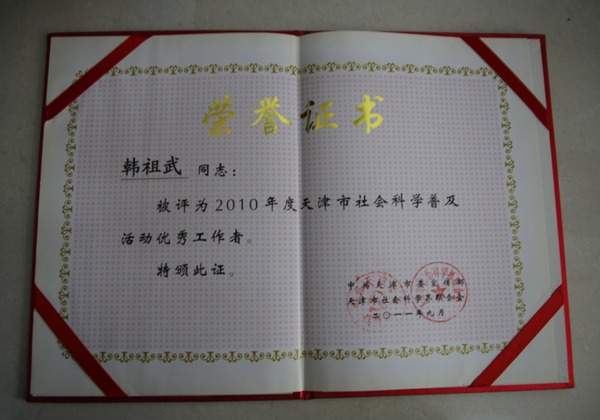 荣誉证书
韩祖武 同志:
被评为2010年度天津市社会科学普及
活动优秀工作者。
特颁此证。
中共天津市委宣传部
天津市社会科学界联合会
二〇一一年九月